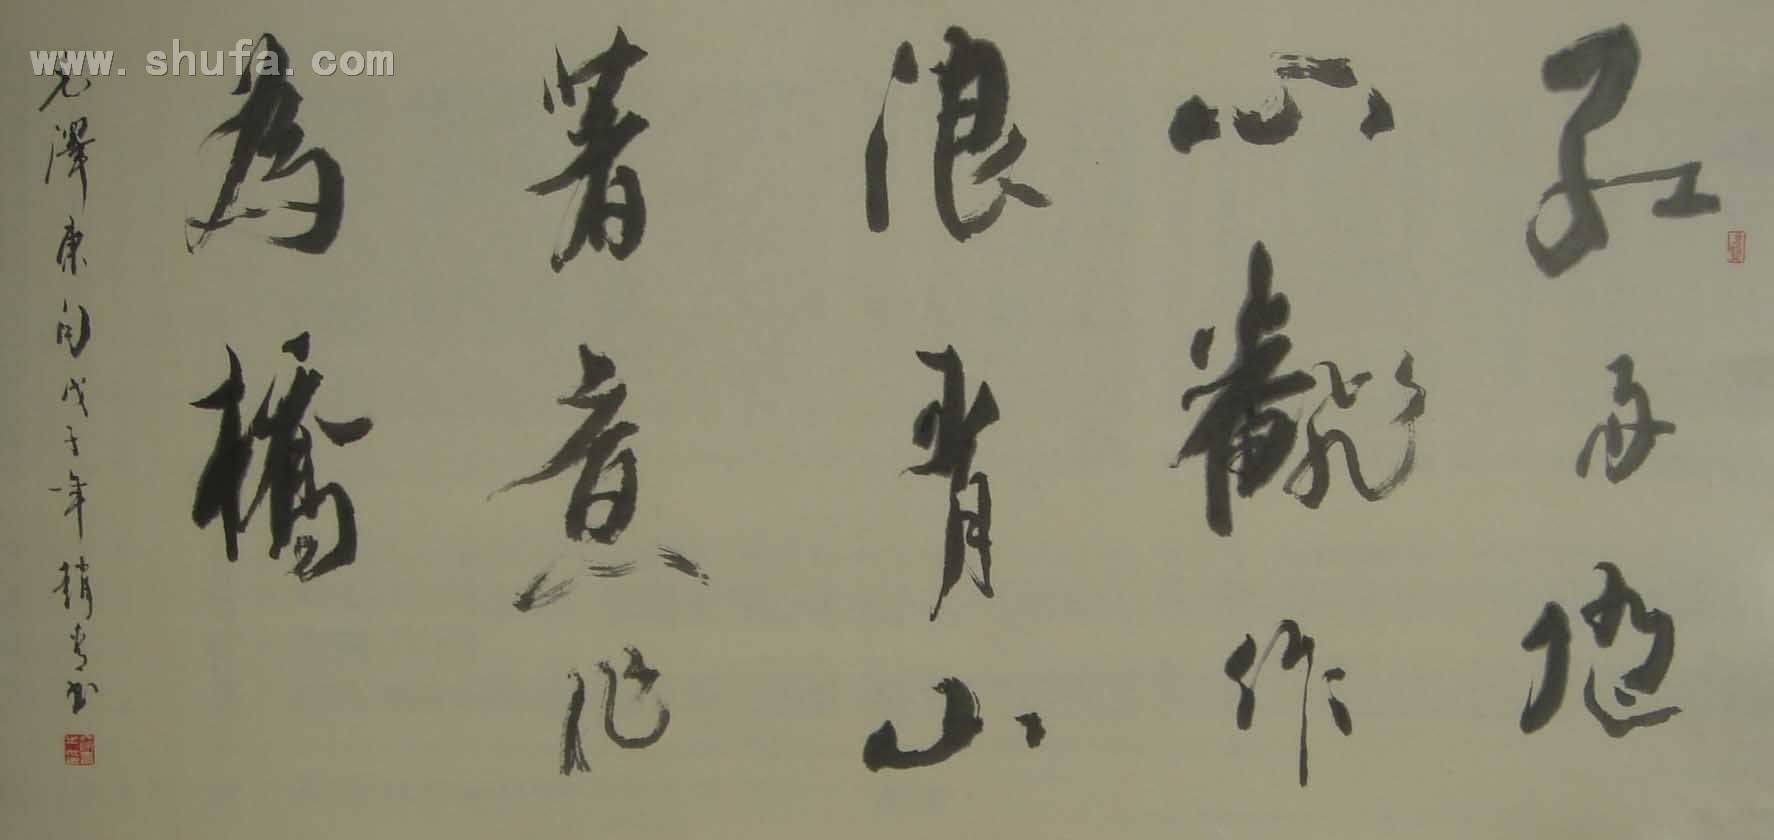 紅雨隨
心飜作
浪青山
著意化
為橋
毛澤東句戊子年書
www.shufa.com